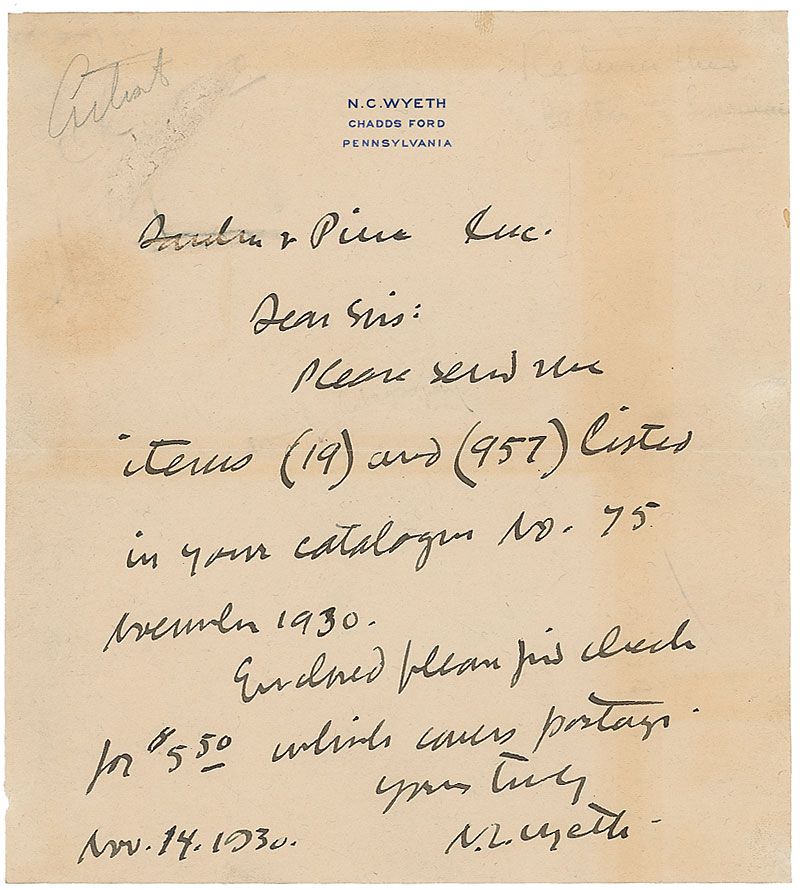 Artist
N.C. WYETH
CHADDS FORD
PENNSYLVANIA
& Inc.
Dear Sirs:
Please send me
items (19) and (957) listed
in your catalogue No. 75
November 1930.
Enclosed please find check
for $5 50 which covers postage.
Yours truly
Nov. 14. 1930.
N.C. Wyeth